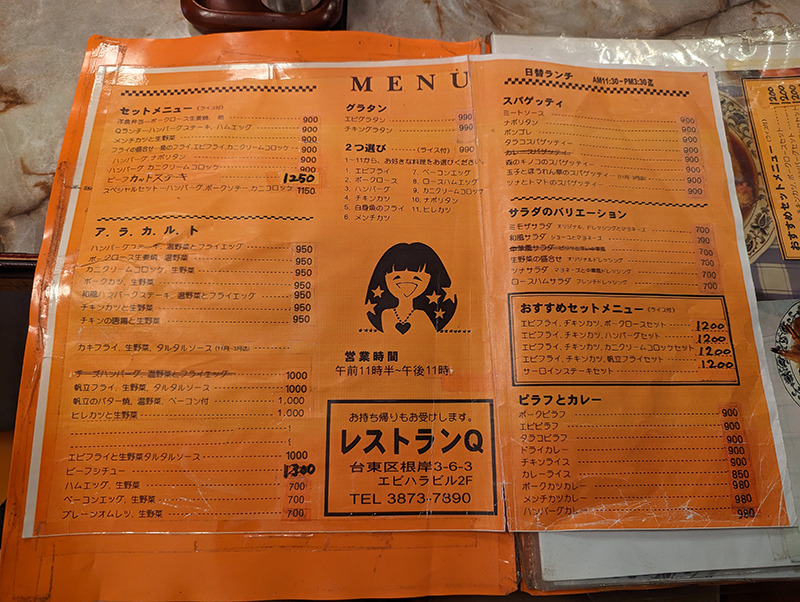 MENU
セットメニュー (ライス付)
洋食弁当―ポークロース生姜焼、他 900
Qランチ―ハンバーグステーキ、ハムエッグ 900
メンチカツと生野菜 900
フライの盛合せ―魚のフライ,エビフライ,カニクリームコロッケ 900
ハンバーグ ナポリタン 900
ハンバーグ カニクリームコロッケ 900
ビーフカットステーキ 1250
スペシャルセット―ハンバーグ,ポークソテー,カニコロッケ 1150
ア.ラ.カ.ル.ト
ハンバーグステーキ、温野菜とフライエッグ 950
ポークロース生姜焼、温野菜 950
カニクリームコロッケ、生野菜 950
ポークカツ、生野菜 950
和風ハンバーグステーキ、温野菜とフライエッグ 950
チキンカツと生野菜 950
チキンの唐揚と生野菜 950
カキフライ、生野菜、タルタルソース (11月-3月迄)
チーズハンバーグ 温野菜とフライエッグ 1000
帆立フライ、生野菜、タルタルソース 1000
帆立のバター焼、温野菜、ベーコン付 1,000
ヒレカツと生野菜 1,000
エビフライと生野菜タルタルソース 1000
ビーフシチュー 1300
ハムエッグ、生野菜 700
ベーコンエッグ、生野菜 700
プレーンオムレツ、生野菜 700
グラタン
エビグラタン 990
チキングラタン 990
2つ選び (ライス付) 990
1―11から、お好きな料理をお選びください
1. エビフライ
2. ポークロース
3. ハンバーグ
4. チキンカツ
5. 白身魚のフライ
6. メンチカツ
7. ベーコンエッグ
8. ロースハムエッグ
9. カニクリームコロッケ
10. ナポリタン
11. ヒレカツ
営業時間
午前11時半~午後11時
お持ち帰りもお受けします。
レストランQ
台東区根岸3-6-3
エビハラビル2F
TEL 3873-7890
日替ランチ AM11:30~PM3:30迄
スパゲッティ
ミートソース 900
ナポリタン 900
ボンゴレ 900
タラコスパゲッティー 900
カレースパゲッティー 900
森のキノコのスパゲッティー 900
玉子とほうれん草のスパゲッティー (11月-3月迄) 900
ツナとトマトのスパゲッティー 900
サラダのバリエーション
ミモザサラダ オリジナル、ドレッシングとマヨネーズ 700
和風サラダ ショーユとマヨネーズ 700
中華風サラダ ピリッと辛い中華風 700
生野菜の盛合せ オリジナルドレッシング 700
ツナサラダ マヨネーズと中華風ドレッシング 700
ロースハムサラダ フレンチドレッシング 700
おすすめセットメニュー (ライス付)
エビフライ、チキンカツ、ポークロースセット 1200
エビフライ、チキンカツ、ハンバーグセット 1200
エビフライ、チキンカツ、カニクリームコロッケセット 1200
エビフライ、チキンカツ、帆立フライセット 1200
サーロインステーキセット
ピラフとカレー
ポークピラフ 900
エビピラフ 900
タラコピラフ 900
ドライカレー 900
チキンライス 900
カレーライス 850
ポークカツカレー 980
メンチカツカレー 980
ハンバーグカレー 980
1200
1200
1200
おすすめセットメニュー